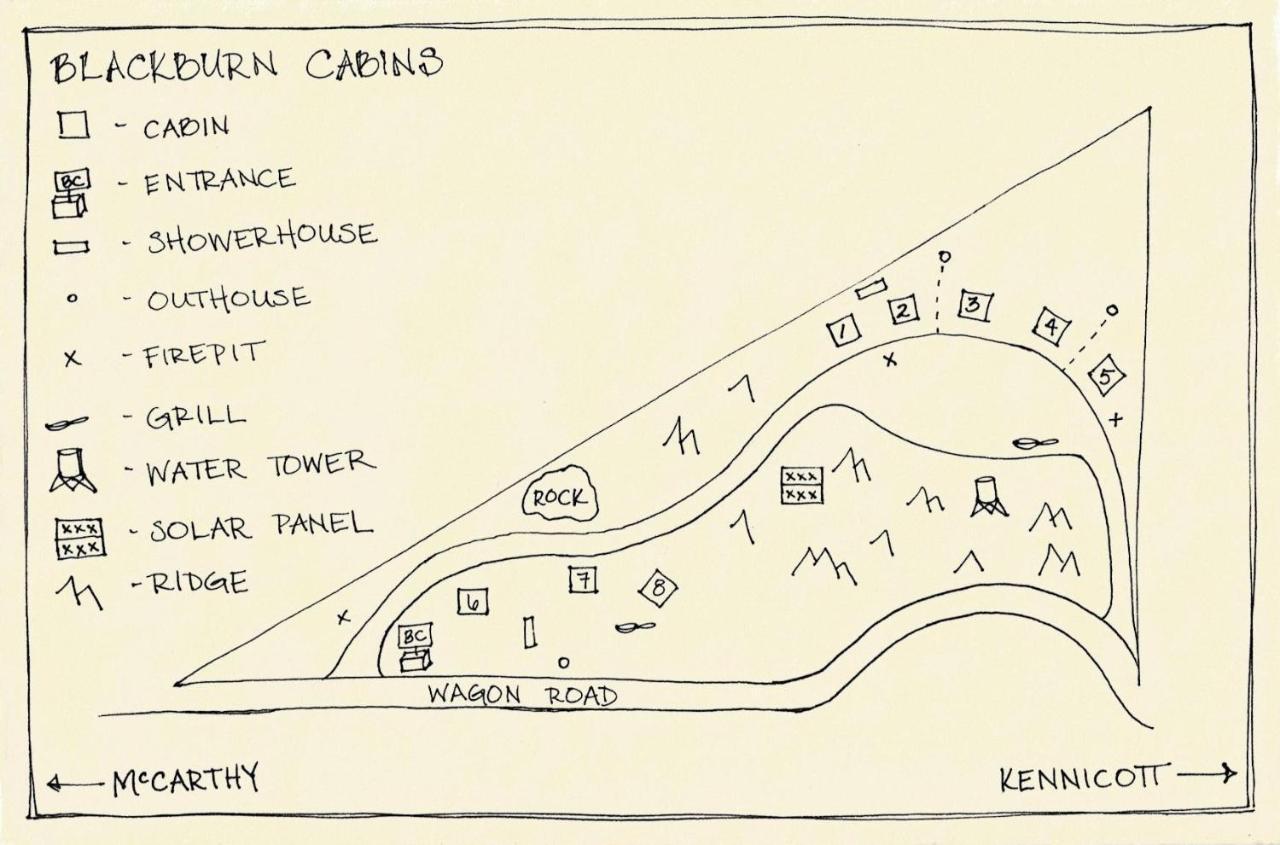 BLACKBURN CABINS
- CABIN
BC - ENTRANCE
- SHOWERHOUSE
- OUTHOUSE
x - FIREPIT
- GRILL
- WATER TOWER
xxx
xxx - SOLAR PANEL
- RIDGE
1
2
3
4
5
ROCK
xxx
xxx
6
7
8
BC
WAGON ROAD
← McCARTHY
KENNICOTT →